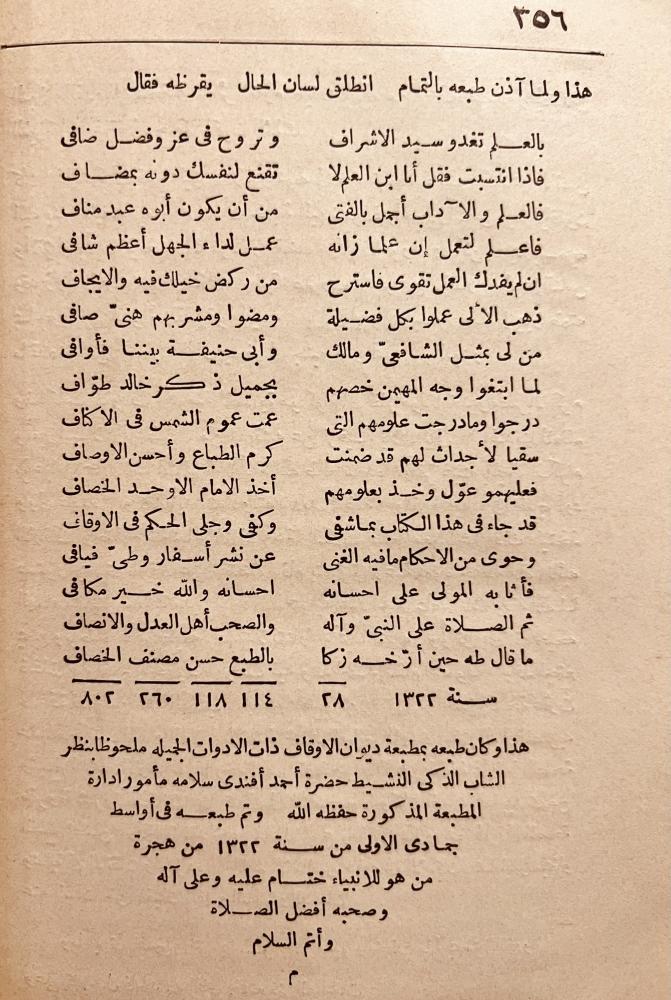 ٣٥٦
هذا ولما آذن طبعه بالتمام انطلق لسان الحال يقرظه فقال
بالعلم تغدو سيد الاشراف وتروح فى عز وفضل ضافى
فاذا انتسبت فقل أنا ابن العلم لا تقنع لنفسك دونه بمضاف
فالعلم والآداب أجمل بالفتى من أن يكون أبوه عبد مناف
فاعلم لتعمل إن علما زانه عمل لداء الجهل أعظم شافى
ان لم يفدك العمل تقوى فاسترح من ركض خيلك فيه والايجاف
ذهب الألى عملوا بكل فضيلة ومضوا ومشربهم هنىّ صافى
من لى بمثل الشافعىّ ومالك وأبى حنيفة بيننا فأوافى
لما ابتغوا وجه المهيمن خصهم بجميل ذكر خالد طوّاف
درجوا وما درجت علومهم التى عمت عموم الشمس فى الاكناف
سقيا لأجداث لهم قد ضمنت كرم الطباع وأحسن الاوصاف
فعليهمو عوّل وخذ بعلومهم أخذ الامام الاوحد الخصاف
قد جاء فى هذا الكتاب بما شفى وكفى وجلى الحكم فى الاوقاف
وحوى من الاحكام ما فيه الغنى عن نشر أسفار وطىّ فيافى
فأثابه المولى على احسانه احسانه والله خير مكافى
ثم الصلاة على النبىّ وآله والصحب أهل العدل والانصاف
ما قال طه حين أرّخه زكا بالطبع حسن مصنف الخصاف
سنة ١٣٢٢ ٢٨ ١١٤ ١١٨ ٢٦٠ ٨٠٢
هذا وكان طبعه بمطبعة ديوان الاوقاف ذات الادوات الجميله ملحوظا بنظر
الشاب الذكى النشيط حضرة أحمد أفندى سلامه مأمور ادارة
المطبعة المذكورة حفظه الله وتم طبعه فى أواسط
جمادى الاولى من سنة ١٣٢٢ من هجرة
من هو للانبياء ختام عليه وعلى آله
وصحبه أفضل الصلاة
وأتم السلام
م